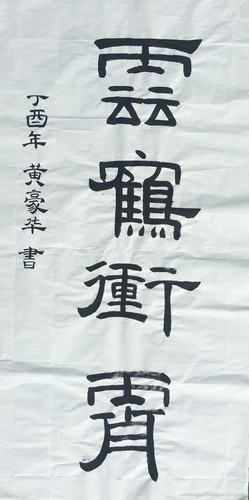 雲鶴衝霄
丁酉年 黄豪华 書